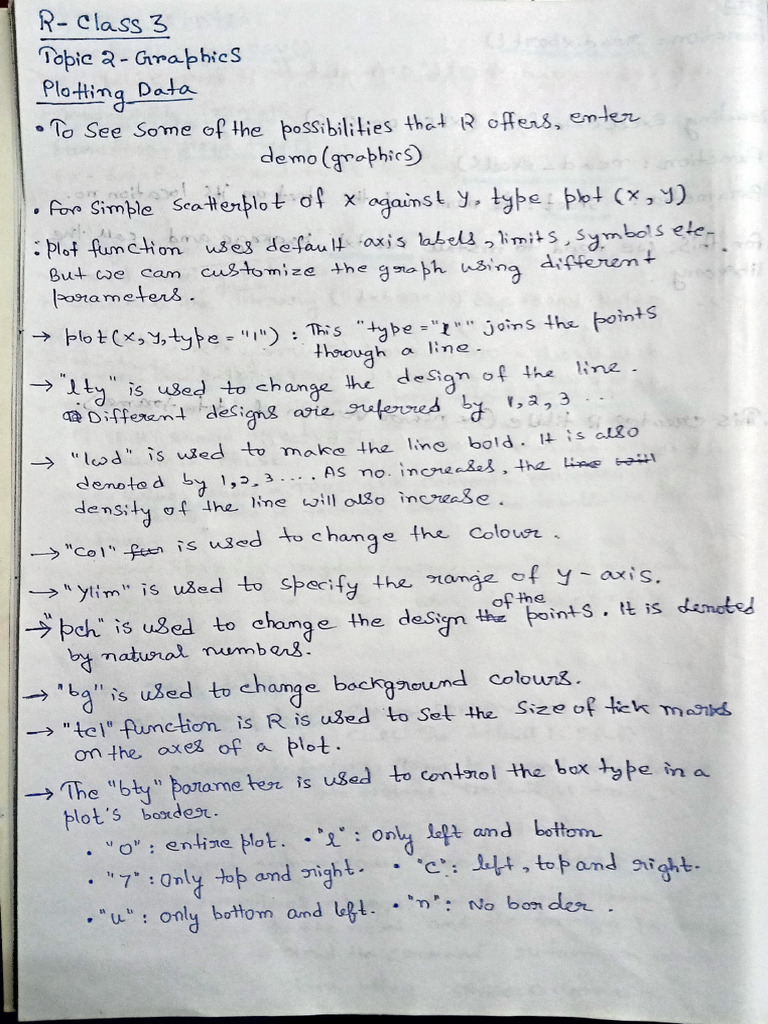 R- Class 3
Topic 2 - Graphics
Plotting Data
• To See Some of the possibilities that R offers, enter
demo(graphics)
• For Simple Scatterplot of x against y, type plot (x, y)
: plot function uses default axis labels, limits, symbols etc-
But we can customize the graph using different
parameters.
→ plot(x,y,type = "l") : This "type = "l"" joins the points
through a line.
→ "lty" is used to change the design of the line.
Different designs are referred by 1, 2, 3 ..
→ "lwd" is used to make the line bold. It is also
denoted by 1, 2, 3.... As no. increases, the line will
density of the line will also increase.
→ "col" fun is used to change the colour.
→ "ylim" is used to specify the range of y-axis.
→ "pch" is used to change the design the of the points. It is denoted
by natural numbers.
→ "bg" is used to change background colours.
→ "tcl" function is R is used to set the size of tick marks
on the axes of a plot.
→ The "bty" parameter is used to control the box type in a
plot's border.
• "o" : entire plot. • "l" : only left and bottom
• "7" : Only top and right. • "c" : left, top and right.
• "u" : only bottom and left. • "n" : No border.